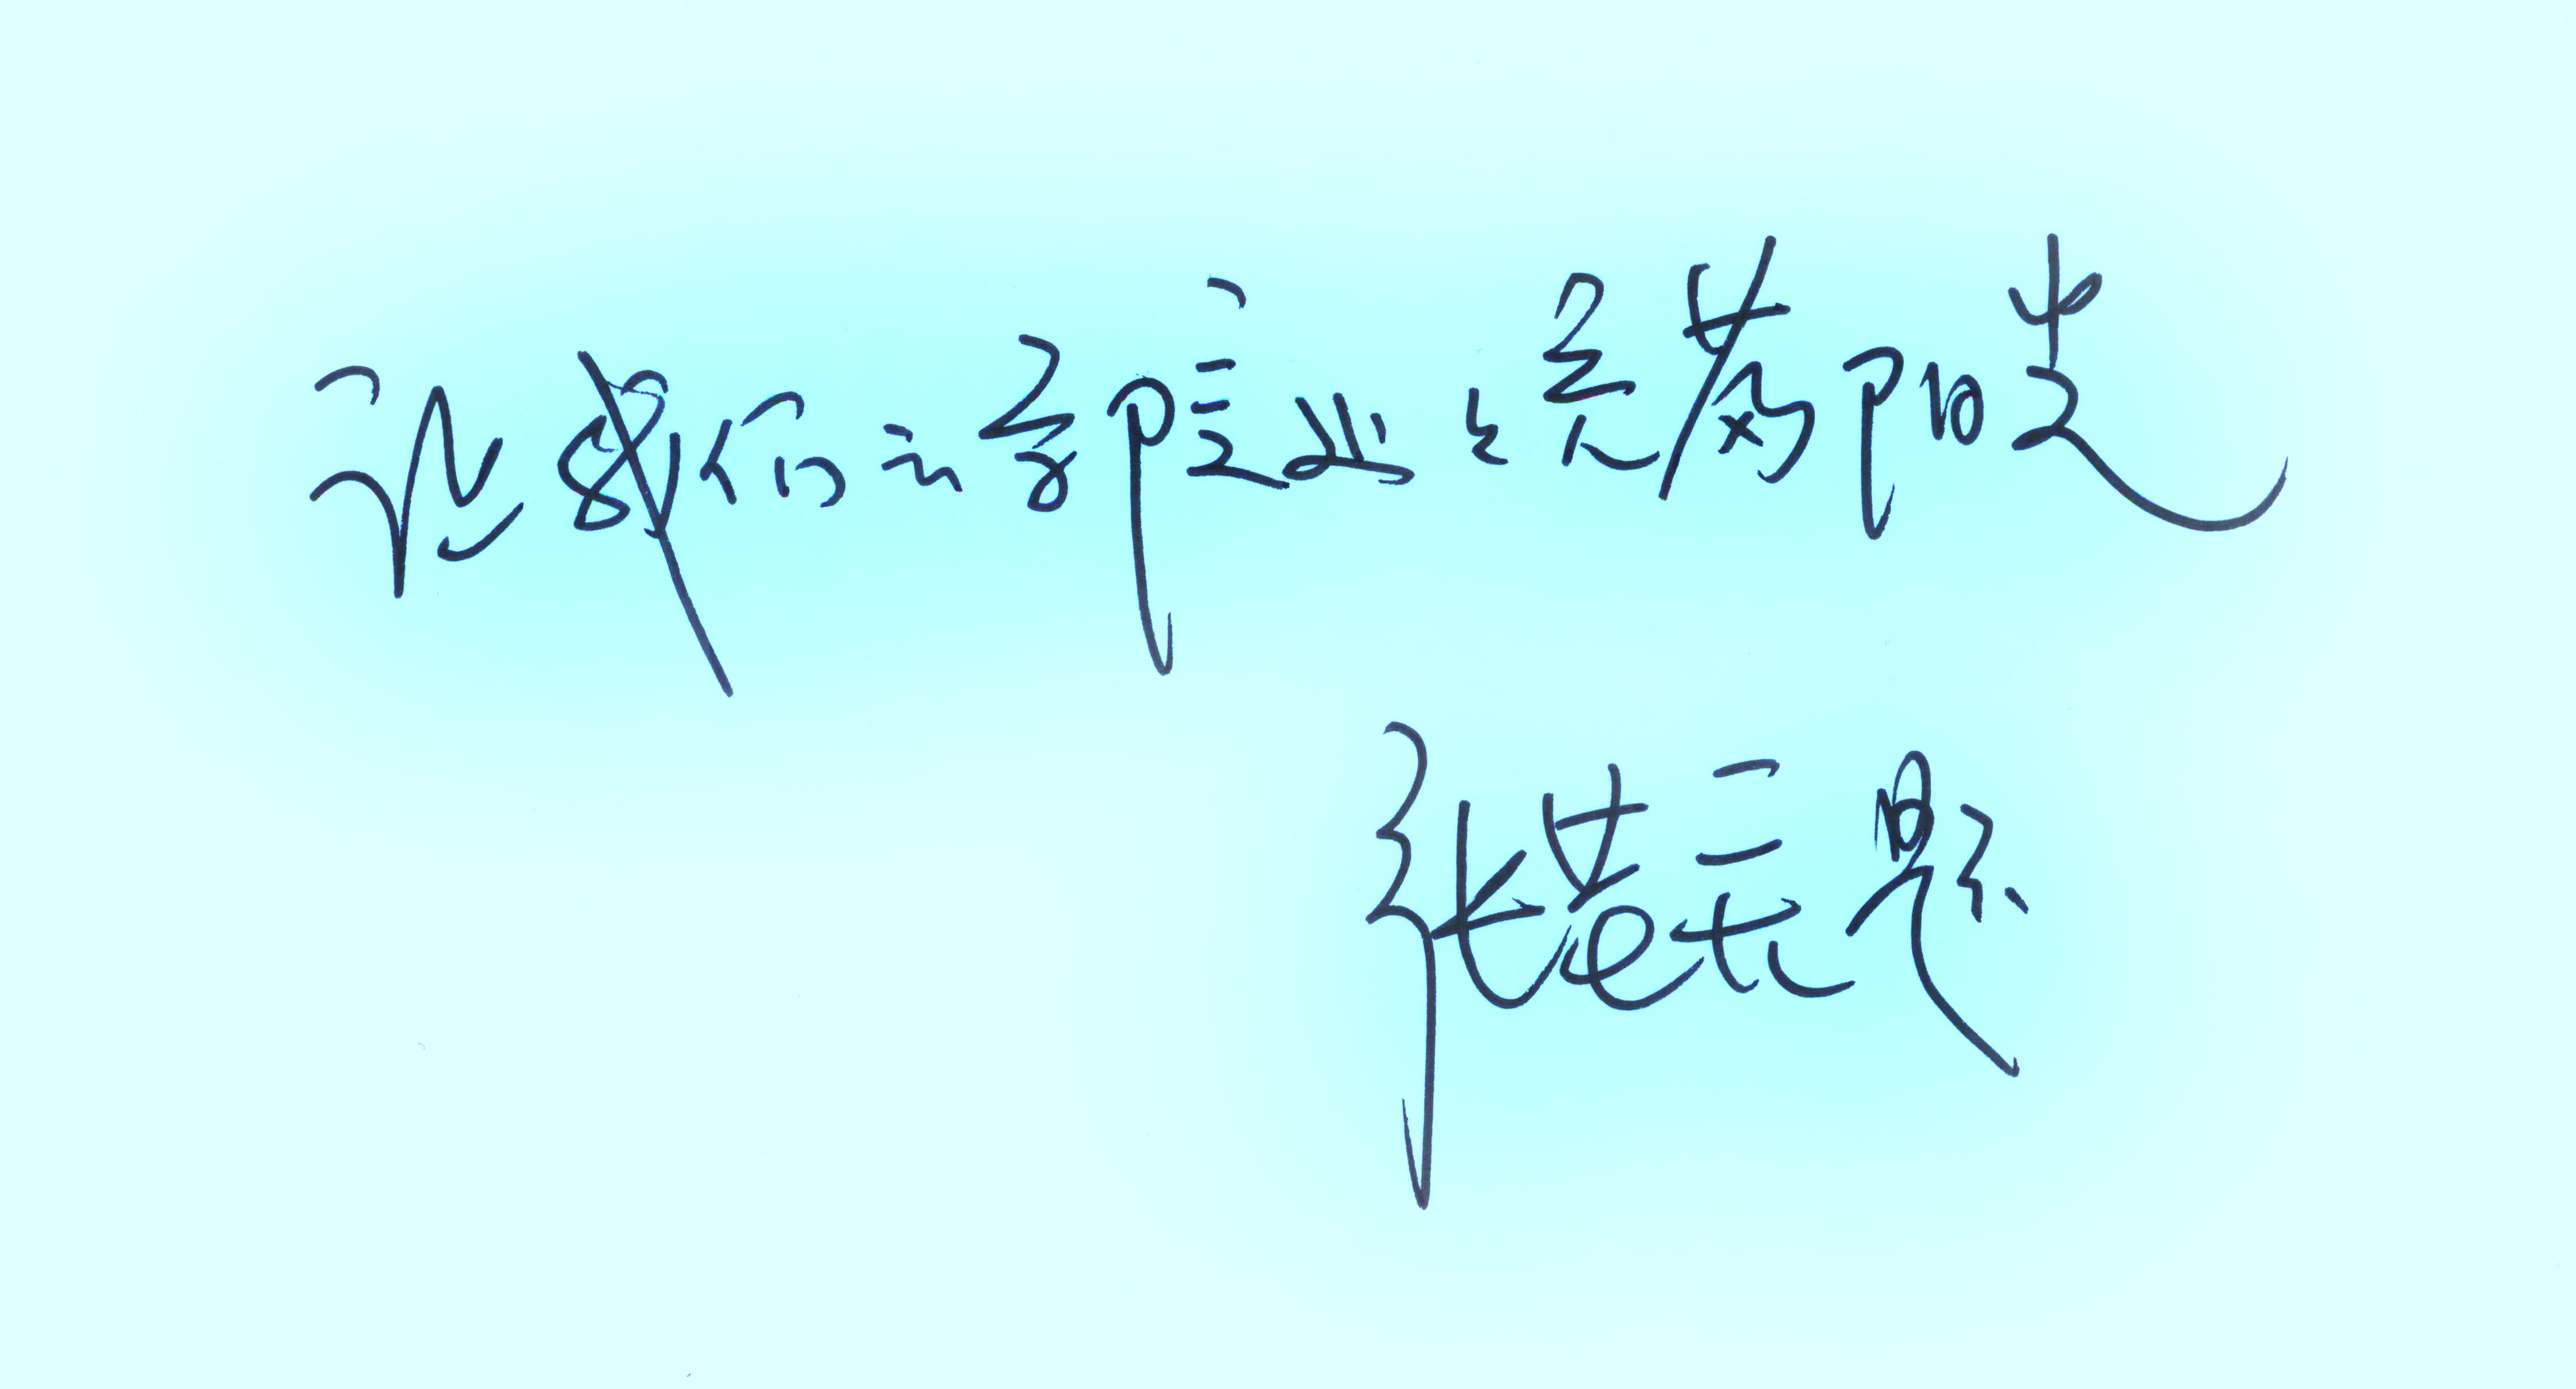 让我们的学院处处充满阳光
张芸题